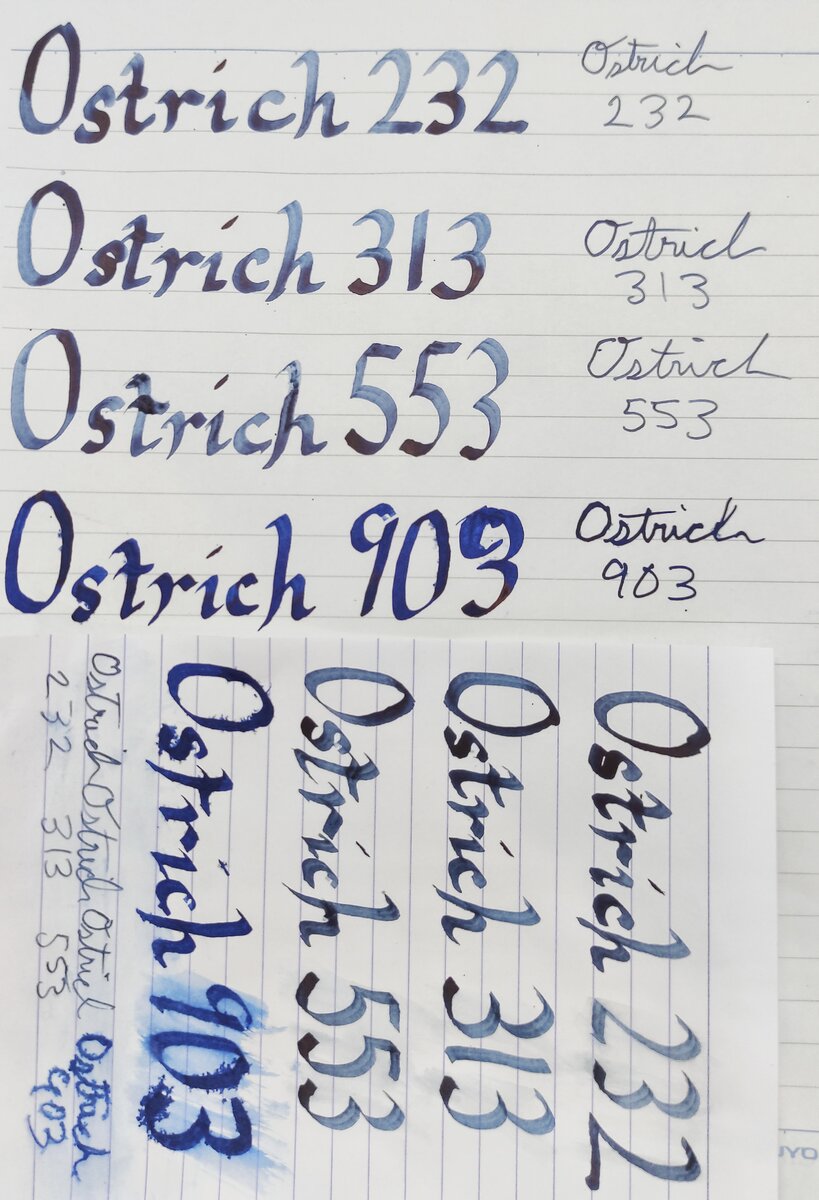 Ostrich 232
Ostrich
232
Ostrich 313
Ostrich
313
Ostrich 553
Ostrich
553
Ostrich 903
Ostrich
903
Ostrich 232
Ostrich 313
Ostrich 553
Ostrich 903
Ostrich Ostrich Ostrich Ostrich
232 313 553 903